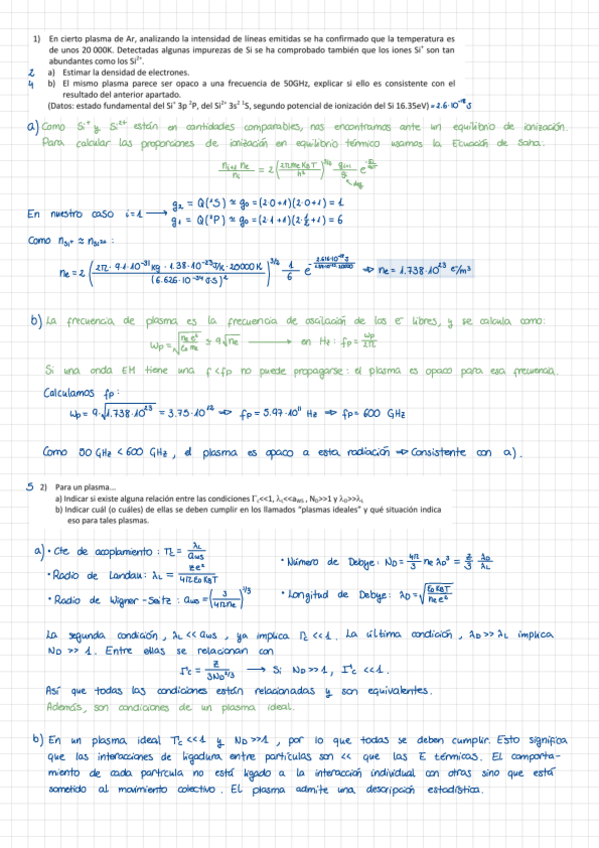 1) En cierto plasma de Ar, analizando la intensidad de líneas emitidas se ha confirmado que la temperatura es
de unos 20 000K. Detectadas algunas impurezas de Si se ha comprobado también que los iones Si⁺ son tan
abundantes como los Si²⁺.
2 a) Estimar la densidad de electrones.
4 b) El mismo plasma parece ser opaco a una frecuencia de 50GHz, explicar si ello es consistente con el
resultado del anterior apartado.
(Datos: estado fundamental del Si⁺ 3p ²P, del Si²⁺ 3s² ¹S, segundo potencial de ionización del Si 16.35eV) = 2.6·10⁻¹⁸ J
a) Como Si⁺ y Si²⁺ están en cantidades comparables, nos encontramos ante un equilibrio de ionización.
Para calcular las proporciones de ionización en equilibrio térmico usamos la Ecuación de Saha:
En nuestro caso i=1 → g₂ = Q(¹S) ≈ g₀ = (2·0+1)(2·0+1) = 1
g₁ = Q(²P) ≈ g₀ = (2·1+1)(2·½+1) = 6
Como n_Si⁺ ≈ n_Si²⁺ :
ne = 2 (2π · 9.1·10⁻³¹ kg · 1.38·10⁻²³ J/K · 20000 K / (6.626·10⁻³⁴ J·S)²)^3/2 1/6 e ⇒ ne = 1.738·10²³ e⁻/m³
b) La frecuencia de plasma es la frecuencia de oscilación de los e⁻ libres, y se calcula como:
Wp = √(ne e²/ε₀ me) ≈ 9√ne → en Hz: fp = Wp/2π
Si una onda EM tiene una f < fp no puede propagarse: el plasma es opaco para esa frecuencia.
Calculamos fp:
Wp = 9·√1.738·10²³ = 3.75·10¹² ⇒ fp = 5.97·10¹¹ Hz ⇒ fp = 600 GHz
Como 50 GHz < 600 GHz, el plasma es opaco a esta radiación ⇒ Consistente con a).
5 2) Para un plasma...
a) Indicar si existe alguna relación entre las condiciones Γc<<1, λL<<aWS, ND>>1 y λD>>λL
b) Indicar cuál (o cuáles) de ellas se deben cumplir en los llamados "plasmas ideales" y qué situación indica
eso para tales plasmas.
a) · Cte de acoplamiento : Γc = λL/aws
· Número de Debye: ND = 4π/3 ne λD³ = Z/3 λD/λL
· Radio de Landau: λL = Ze²/4πε₀KBT
· Radio de Wigner-Seitz : aws = (3/4πne)^1/3
· Longitud de Debye: λD = √(ε₀KBT/ne e²)
La segunda condición, λL << aws , ya implica Γc << 1. La última condición, λD >> λL implica
ND >> 1. Entre ellas se relacionan con
Γc = Z/3ND^2/3 → Si ND >> 1, Γc << 1.
Así que todas las condiciones están relacionadas y son equivalentes.
Además, son condiciones de un plasma ideal.
b) En un plasma ideal Γc << 1 y ND >> 1 , por lo que todas se deben cumplir. Esto significa
que las interacciones de ligadura entre partículas son << que las E térmicas. El comporta-
miento de cada partícula no está ligado a la interacción individual con otras sino que está
sometido al movimiento colectivo. El plasma admite una descripción estadística.